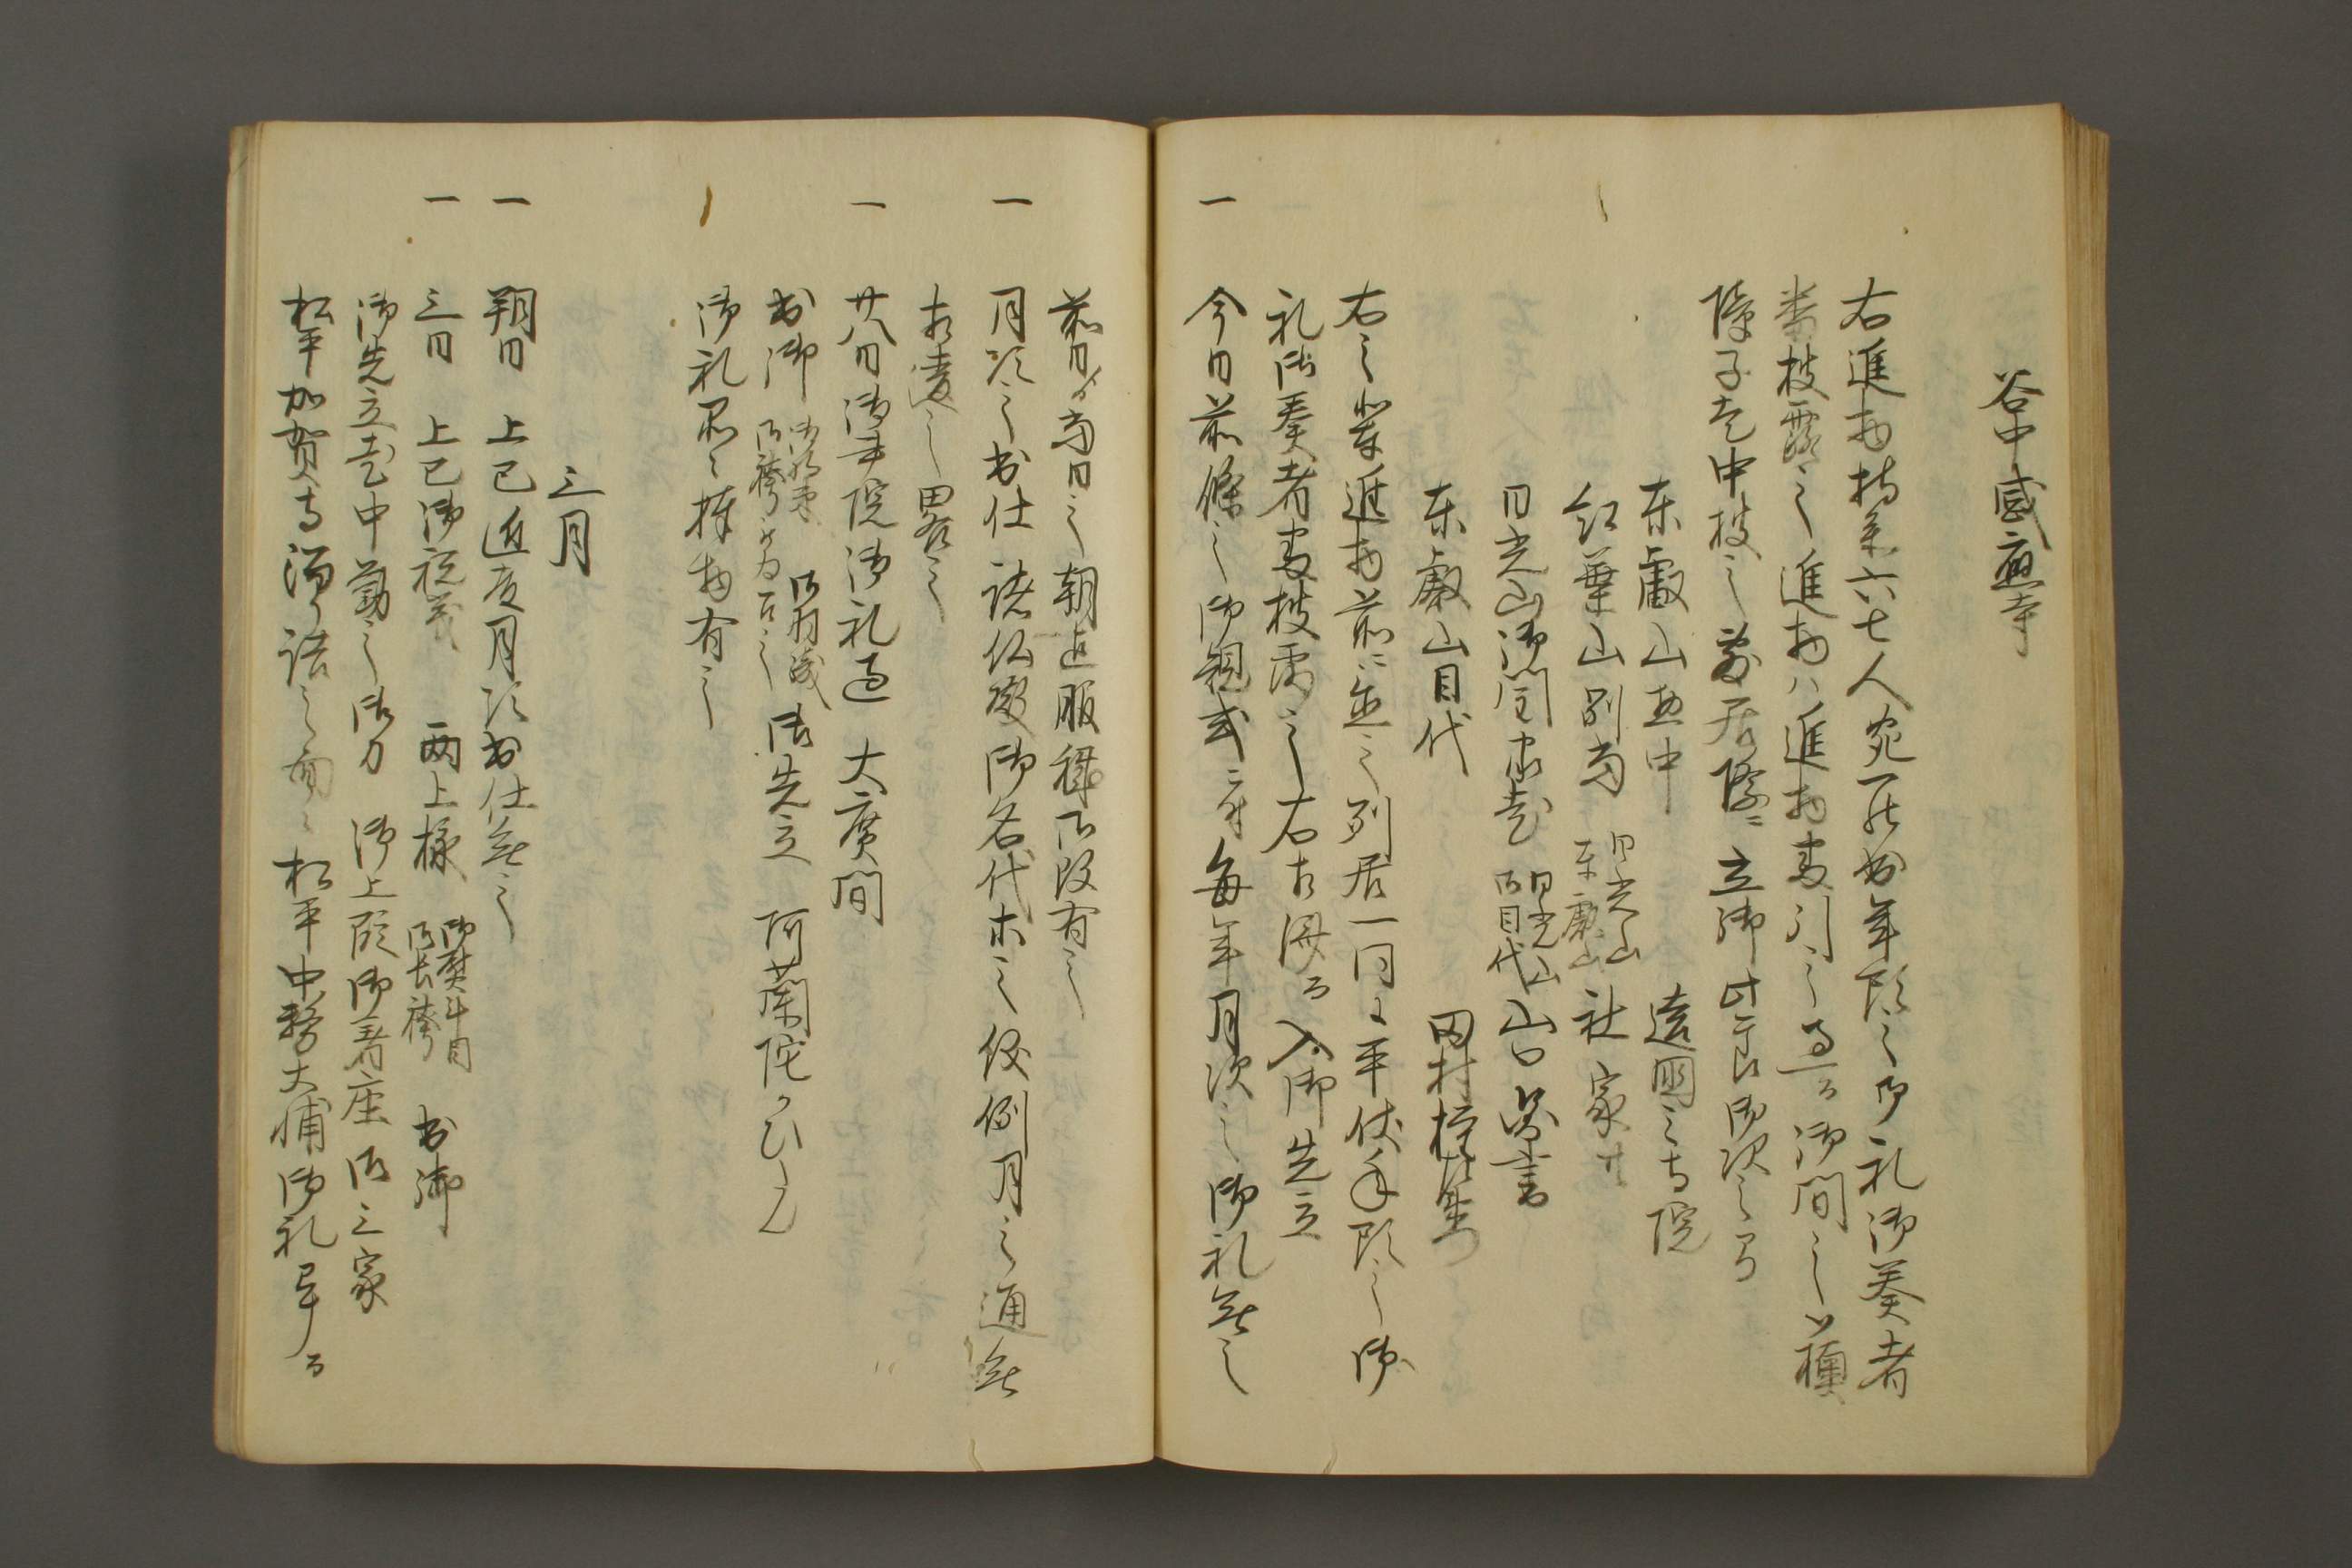 谷中感應寺
右進物持参六七人宛罷出年頭之御礼御奏者
番披露之進物ハ進物番引之過而御間之御襖
障子老中披之前居際ニ立御此節御次之間
東叡山衆中 遠国之寺院
紅葉山別当 日光山 東叡山 社家共
日光山御門主老 日光山御目代 山口図書
東叡山目代 田村権右衛門
右之輩進物前ニ並之列居一同ニ平伏年頭之御
礼御奏者番披露之右相済而入御先立
一 今日前條之御規式ニ付毎年月次之御礼無之
前日より当日之朝迄服穢御改有之
一 月次之出仕諸仏殿御名代等之儀例月之通無
相違之畧之
一 廿八日御本院御礼過 大廣間
出御 御羽織 御袴被為召之 御先立 阿蘭陀かひたん
御礼罷出 捧物有之
三月
一 朔日 上巳近及月次出仕無之
一 三日 上巳御祝儀 両上様 御熨斗目 御長袴 出御
御先立老中勤之御刀 御上段御着座御三家
松平加賀守溜り詰之面々松平中務大輔御礼畢而